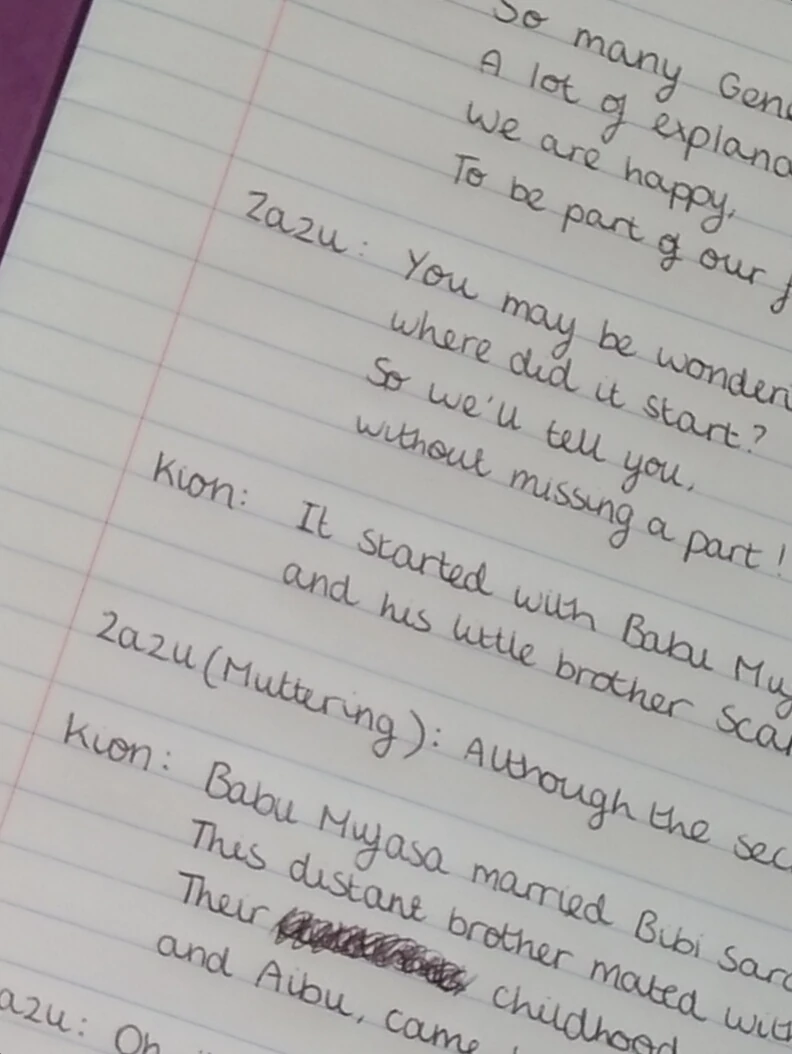 So many Gene
A lot of explana
We are happy,
To be part of our f
Zazu: You may be wonderi
where did it start?
So we'll tell you,
without missing a part!
Kion: It started with Babu Muj
and his little brother Scar
Zazu (Muttering): Although the sec
Kion: Babu Mujasa married Bibi Sara
This distant brother mated with
Their childhood
and Aibu, came
azu: Oh